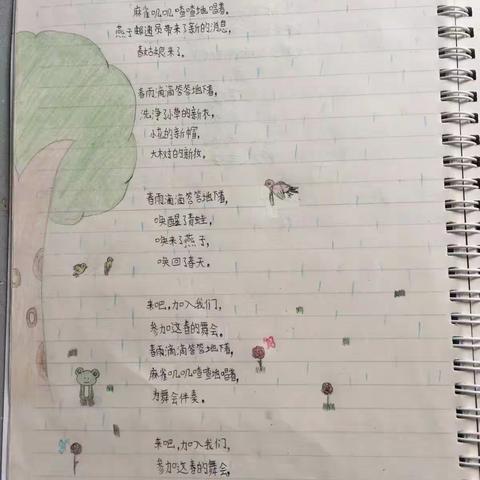 麻雀叽叽喳喳地唱着,
燕子邮递员带来了新的消息,
春姑娘来了。
春雨滴滴答答地下着,
洗净了小草的新衣,
小花的新帽,
大树的新妆。
春雨滴滴答答地下着,
唤醒了青蛙,
唤来了燕子,
唤回了春天。
来吧,加入我们,
参加这春的舞会。
春雨滴滴答答地下着,
麻雀叽叽喳喳地唱着,
为舞会伴奏。
来吧,加入我们,
参加这春的舞会,